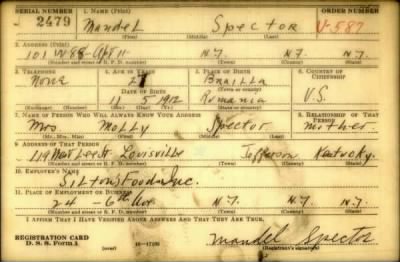 SERIAL NUMBER 1. NAME (Print) ORDER NUMBER
2479 Mandel Spector V-587
(First) (Middle) (Last)
2. ADDRESS (Print)
101 W 88 - Apt 11 N.Y. N.Y. N.Y.
(Number and street or R. F. D. number) (Town) (County) (State)
3. TELEPHONE 4. AGE IN YEARS 5. PLACE OF BIRTH 6. COUNTRY OF CITIZENSHIP
None Brailla
DATE OF BIRTH (Town or county)
5 1912 Romania U.S.
(Exchange) (Number) (Mo.) (Day) (Yr.) (State or country)
7. NAME OF PERSON WHO WILL ALWAYS KNOW YOUR ADDRESS 8. RELATIONSHIP OF THAT PERSON
Mrs Molly Spector Mother
(Mr., Mrs., Miss) (First) (Middle) (Last)
9. ADDRESS OF THAT PERSON
Louisville Jefferson Kentucky
(Number and street or R. F. D. number) (Town) (County) (State)
10. EMPLOYER'S NAME
Inc.
11. PLACE OF EMPLOYMENT OR BUSINESS
24 - 6th Ave N.Y. N.Y. N.Y.
(Number and street or R. F. D. number) (Town) (County) (State)
I AFFIRM THAT I HAVE VERIFIED ABOVE ANSWERS AND THAT THEY ARE TRUE.
REGISTRATION CARD
D. S. S. Form 1 (over) Mandel Spector
(Registrant's signature)